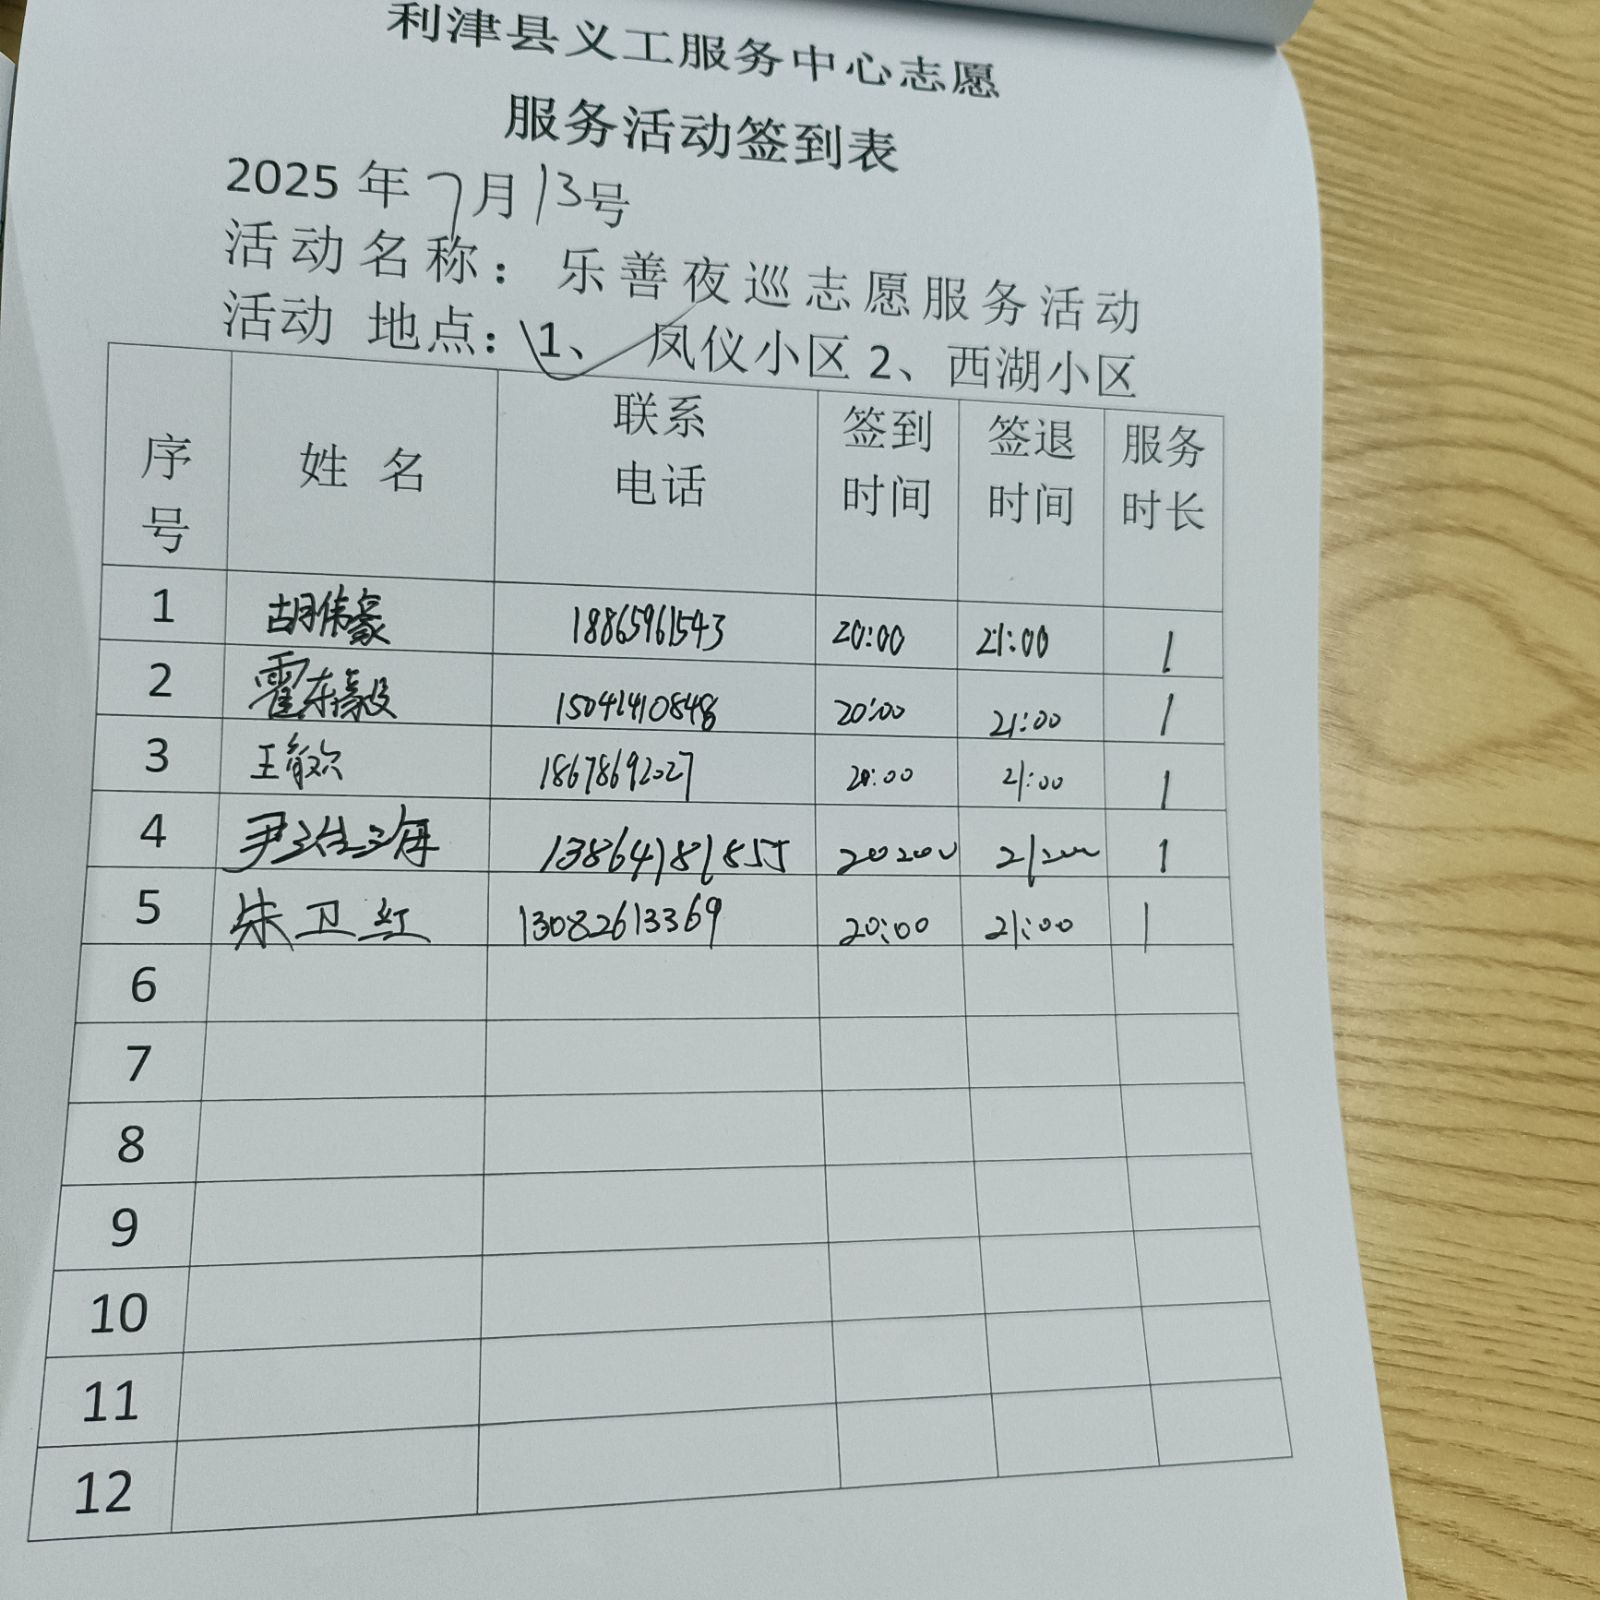 利津县义工服务中心志愿
服务活动签到表
2025 年 7月 13号
活动名称：乐善夜巡志愿服务活动
活动 地点：1、 凤仪小区 2、西湖小区
序号 姓 名 联系电话 签到时间 签退时间 服务时长
1 胡伟豪 18865961543 20:00 21:00 1
2 霍东毅 15041410848 20:00 21:00 1
3 王 18678692027 20:00 21:00 1
4 尹 海 13864181855 20:00 21:00 1
5 朱卫红 13082613369 20:00 21:00 1
6
7
8
9
10
11
12